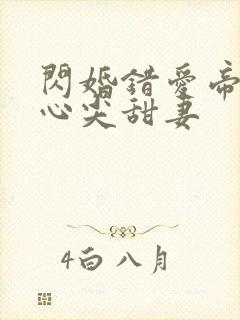 閃婚錯愛帝
心尖甜妻
4白八月